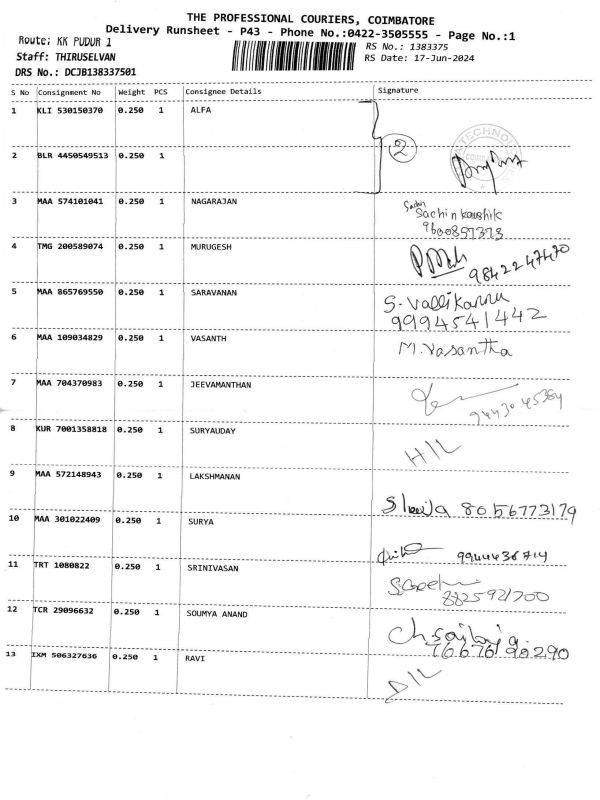 THE PROFESSIONAL COURIERS, COIMBATORE
Delivery Runsheet - P43 - Phone No.:0422-3505555 - Page No.:1
Route: KK PUDUR 1
RS No.: 1383375
Staff: THIRUSELVAN
RS Date: 17-Jun-2024
DRS No.: DCJB138337501
S No Consignment No Weight PCS Consignee Details Signature
1 KLI 530150370 0.250 1 ALFA
2
2 BLR 4450549513 0.250 1
3 MAA 574101041 0.250 1 NAGARAJAN
Sachin
Sachin kaushik
9600857373
4 TMG 200589074 0.250 1 MURUGESH
9842247470
5 MAA 865769550 0.250 1 SARAVANAN
S. Vallikannu
9994541442
6 MAA 109034829 0.250 1 VASANTH
M. Vasantha
7 MAA 704370983 0.250 1 JEEVAMANTHAN
8 KUR 7001358818 0.250 1 SURYAUDAY
9 MAA 572148943 0.250 1 LAKSHMANAN
8056773179
10 MAA 301022409 0.250 1 SURYA
9944436714
11 TRT 1080822 0.250 1 SRINIVASAN
8825921700
12 TCR 29096632 0.250 1 SOUMYA ANAND
13 IXM 506327636 0.250 1 RAVI